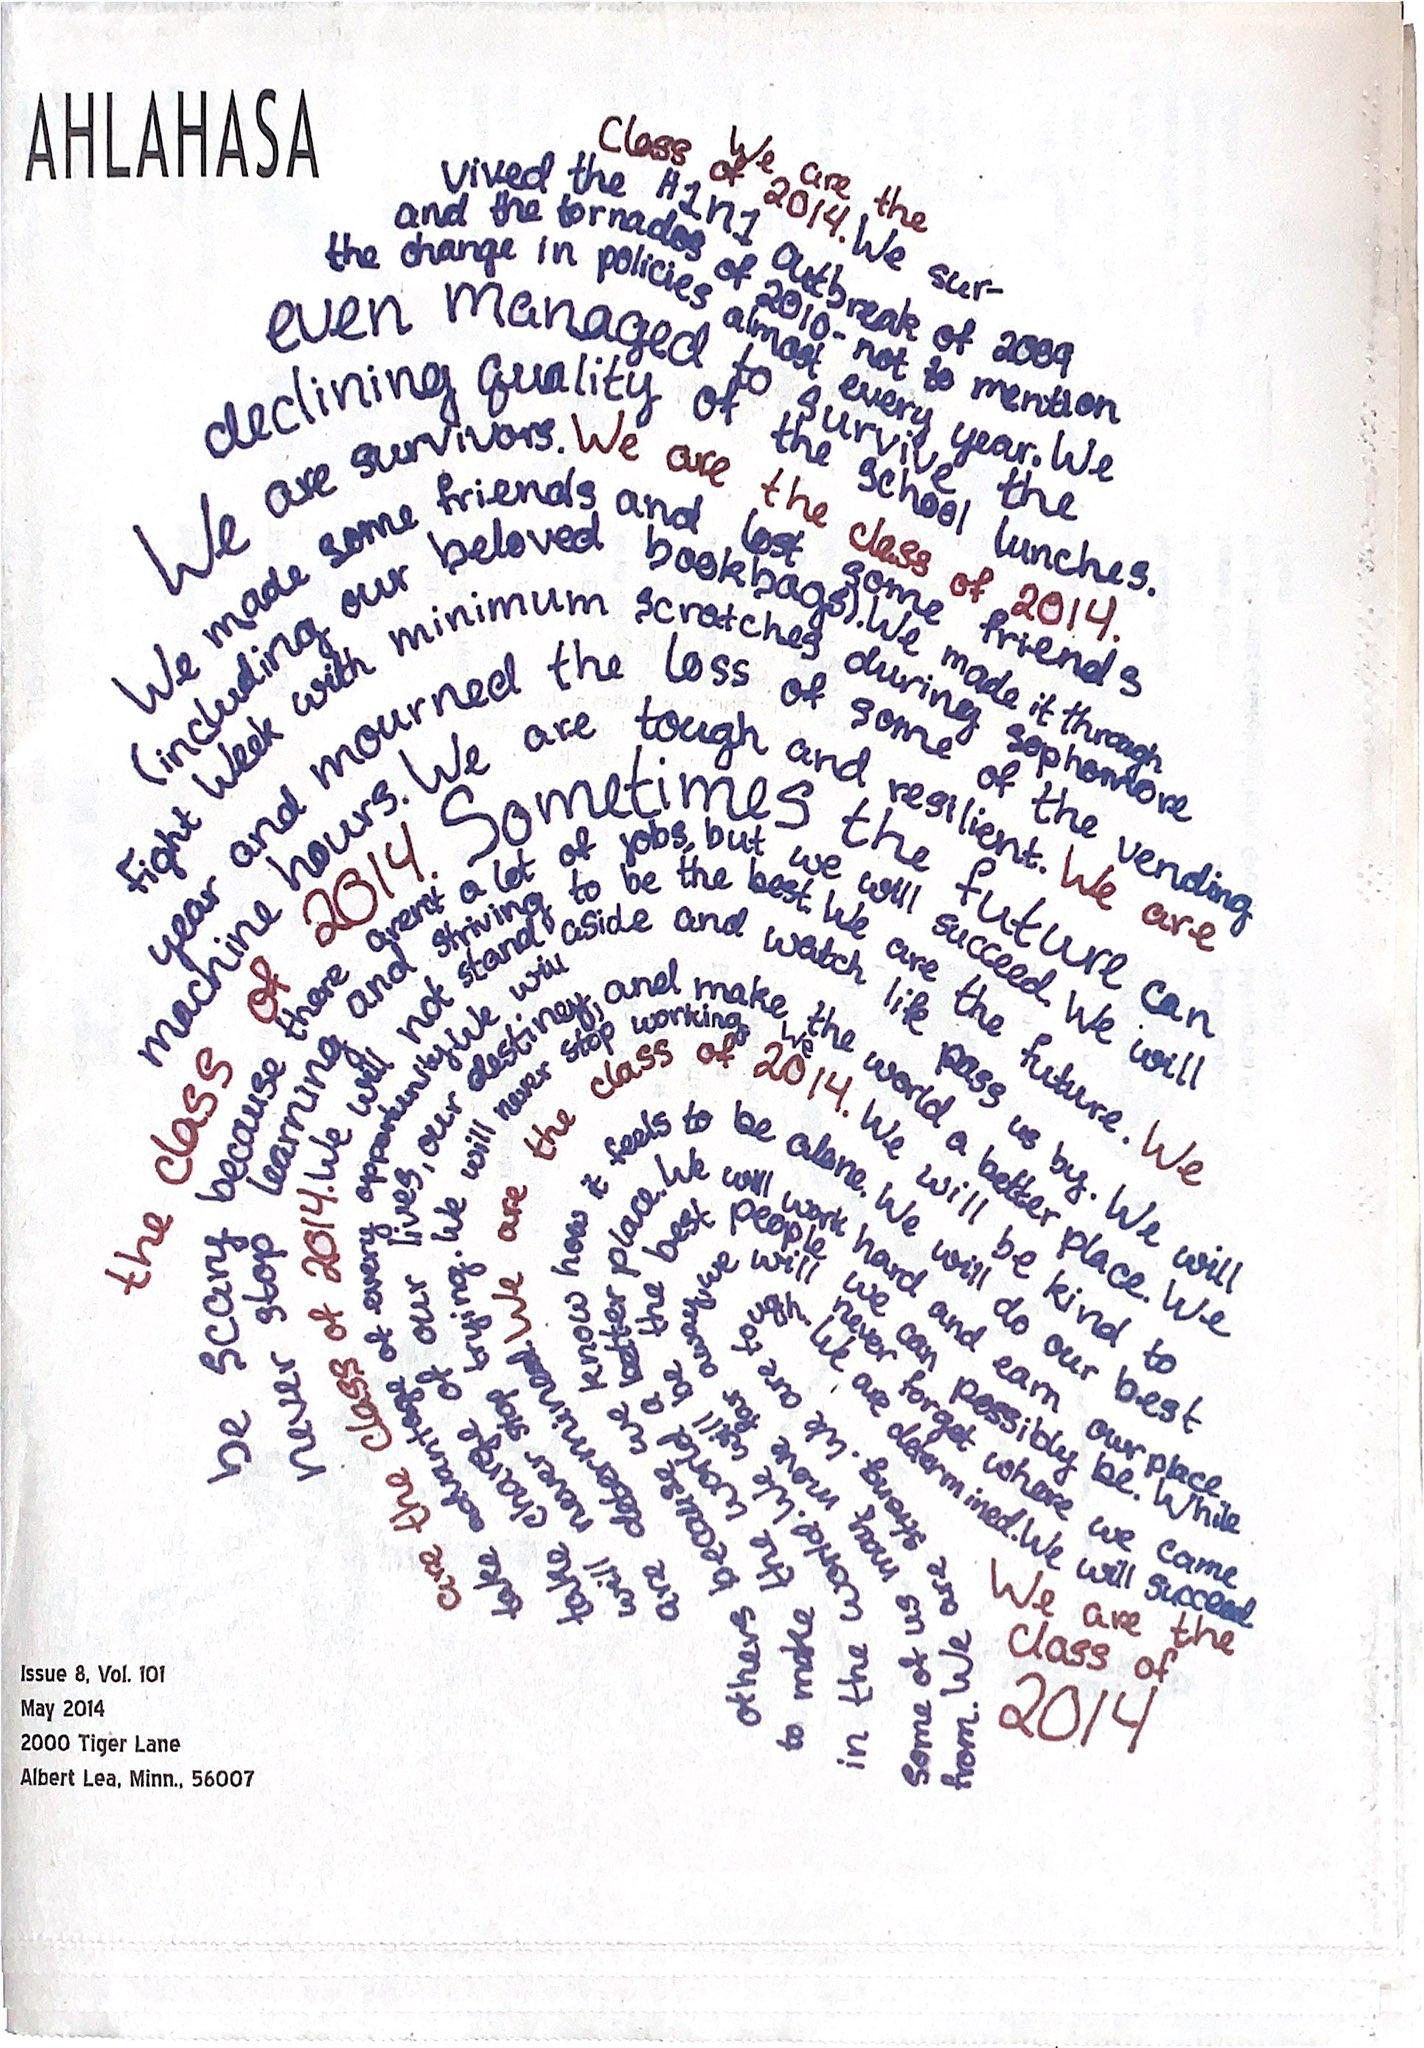 AHLAHASA
We are the
Class of 2014. We sur-
vived the H1n1 outbreak of 2009
and the tornados of 2010- not to mention
the change in policies almost every year. We
even managed to survive the
declining quality of the school lunches.
We are survivors. We are the class of 2014.
We made some friends and lost some friends
(including our beloved bookbags). We made it through
Fight Week with minimum scratches during sophomore
year and mourned the loss of some of the vending
machine hours. We are tough and resilient. We are
the class of 2014. Sometimes the future can
be scary because there arent a lot of jobs, but we will succeed. We will
never stop learning and striving to be the best. We are the future. We
are the class of 2014. We will not stand aside and watch life pass us by. We will
take advantage of every opportunity. We will
take charge of our lives, our destiny, and make the world a better place. We
will never stop trying. We will never stop working. We
are determined. We are the class of 2014. We will be kind to
others because we know how it feels to be alone. We will do our best
to make the world a better place. We will work hard and earn our place
in the world. We will be the best people we can possibly be. While
some of us may move far away, we will never forget where we came
from. We are strong. We are tough. We are determined. We will succeed
We are the
class of
2014
Issue 8, Vol. 101
May 2014
2000 Tiger Lane
Albert Lea, Minn., 56007